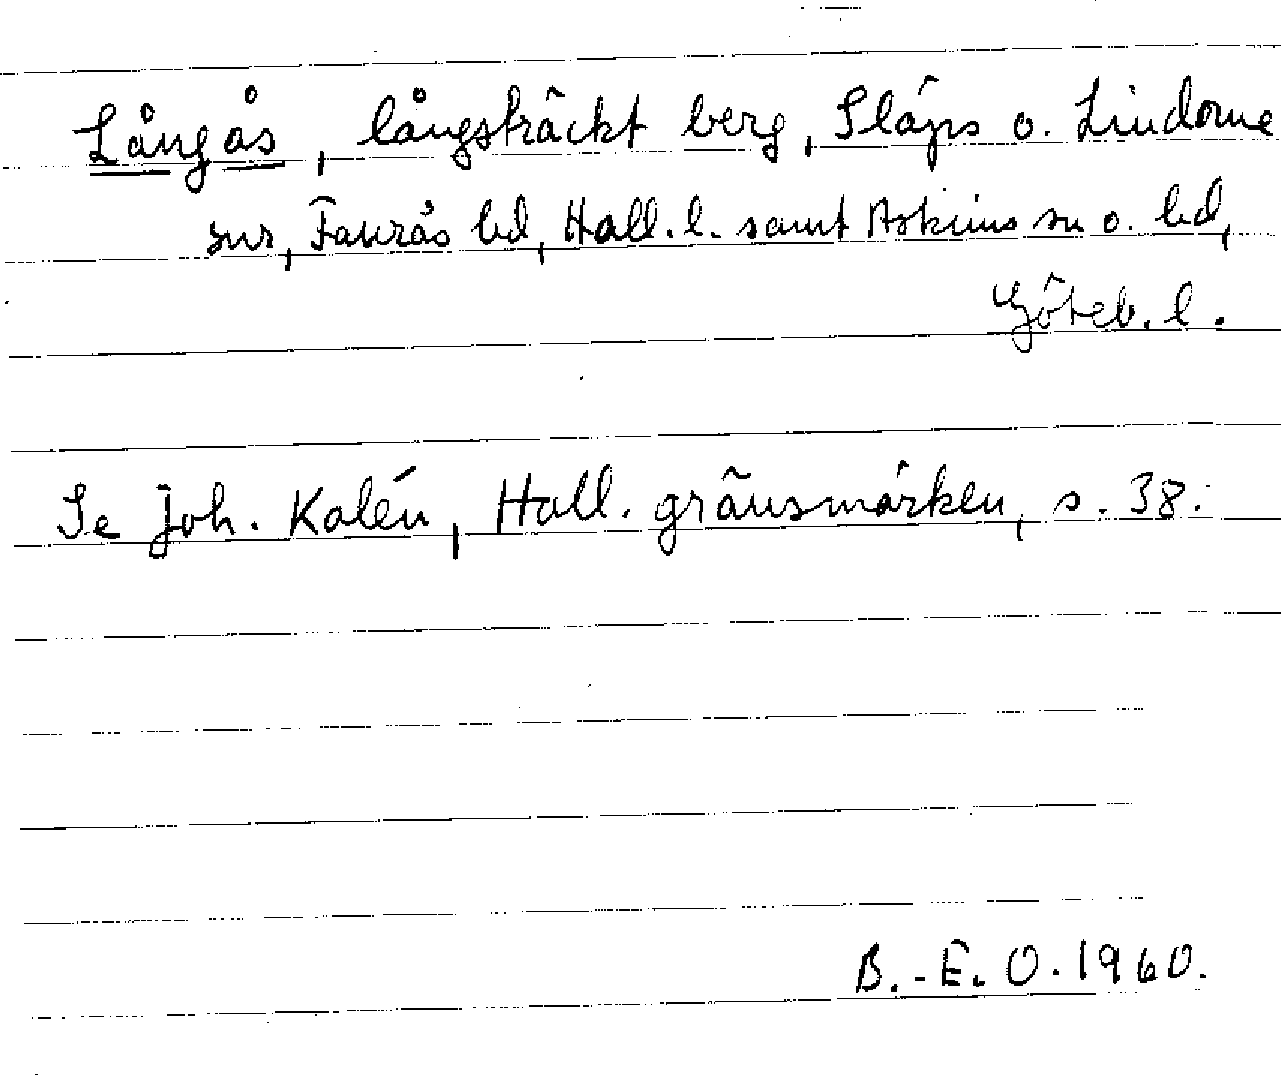 Långås, långsträckt berg, Släps o. Lindome
snr, Faurås hd, Hall. l. samt Askims sn o. hd,
Göteb. l.
Se Joh. Kalén, Hall. gränsmärken, s. 38.
B.-E. O. 1960.